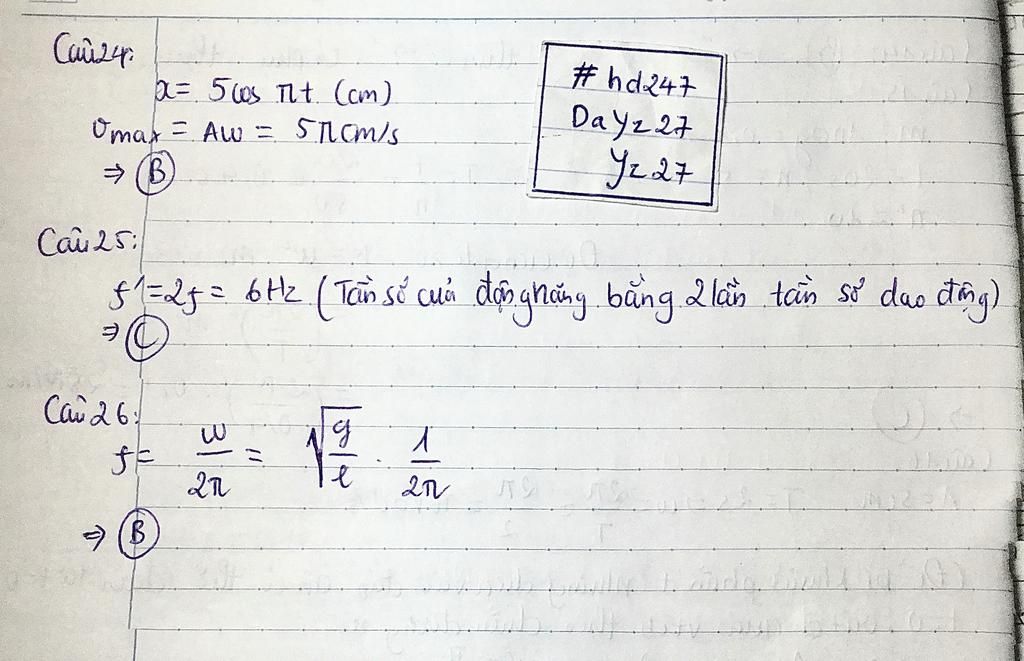 Câu 24:
x = 5cos πt (cm)
vmax = Aω = 5π cm/s
⇒ B
#hd247
DaYz27
Yz27
Câu 25:
f' = 2f = 6Hz (Tần số của động năng bằng 2 lần tần số dao động)
⇒ C
Câu 26:
f = ω/2π = √(g/ℓ) . 1/2π
⇒ B